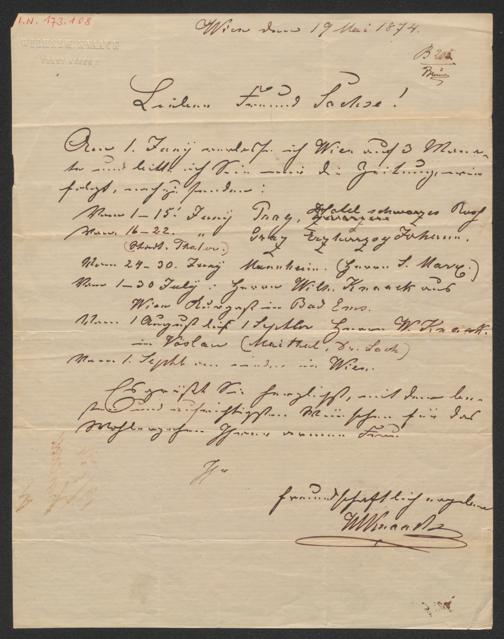 I.N. 173.108
WILHELM KNAACK
Wien den 19 Mai 1874.
Lieber Freund Sachse!
Am 1. Juny verlasse ich Wien auf 3 Mona-
te und bitte ich Sie mir die Zeitung wie
folgt, nachzusenden:
Vom 1–15. Juny Prag, Hotel schwarzes Roß
Vom 16–22. " Graz Erzherzog Johann.
(Thalia.)
Vom 24–30. Juny Mannheim. (Herrn S. Marx.)
Vom 1–30 July: Herrn Wilh. Knaack aus
Wien Kurgast in Bad Ems.
Vom 1 August bis 1 Septbr Herrn W Knaack.
in Vöslau (Maithal, Dr. )
Vom 1. Septbr an wieder in Wien.
Es grüßt Sie herzlichst, mit den be-
sten und aufrichtigsten Wünschen für das
Wohlergehen Ihrer armen Frau
Ihr
freundschaftlich ergebener
WKnaack